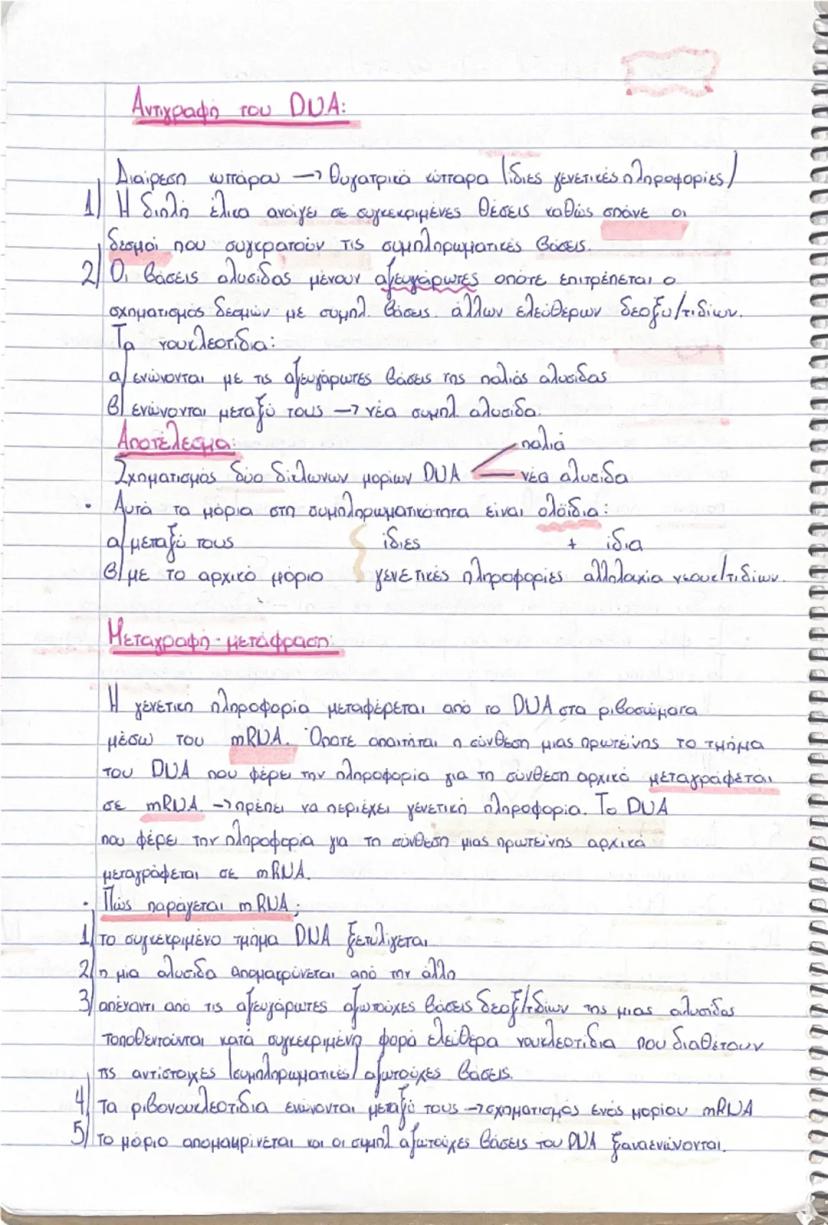 Αντιγραφή του DNA:
Διαίρεση κυττάρου → θυγατρικά κύτταρα (ίδιες γενετικές πληροφορίες)
1) Η διπλή έλικα ανοίγει σε συγκεκριμένες θέσεις καθώς σπάνε οι
δεσμοί που συγκρατούν τις συμπληρωματικές βάσεις.
2) Οι βάσεις αλυσίδας μένουν αζευγάρωτες οπότε επιτρέπεται ο
σχηματισμός δεσμών με συμπλ. βάσεις άλλων ελεύθερων δεοξυ/τιδίων.
Τα νουκλεοτίδια:
α) ενώνονται με τις αζευγάρωτες βάσεις της παλιάς αλυσίδας
β) ενώνονται μεταξύ τους → νέα συμπλ αλυσίδα.
Αποτέλεσμα: παλιά
Σχηματισμός δύο δίκλωνων μορίων DNA < νέα αλυσίδα
· Αυτά τα μόρια στη συμπληρωματικότητα είναι ολόιδια:
α) μεταξύ τους { ίδιες + ίδια
β) με το αρχικό μόριο γενετικές πληροφορίες αλληλουχία νουκ/τιδίων.
Μεταγραφή - μετάφραση:
Η γενετική πληροφορία μεταφέρεται από το DNA στα ριβοσώματα
μέσω του mRNA. Όποτε απαιτήται η σύνθεση μιας πρωτεΐνης το τμήμα
του DNA που φέρει την πληροφορία για τη σύνθεση αρχικά μεταγράφεται
σε mRNA. → πρέπει να περιέχει γενετική πληροφορία. Το DNA
που φέρει την πληροφορία για τη σύνθεση μιας πρωτεΐνης αρχικά
μεταγράφεται σε mRNA.
· Πώς παράγεται mRNA;
1) το συγκεκριμένο τμήμα DNA ξετυλίγεται
2) η μια αλυσίδα απομακρύνεται από την άλλη
3) απέναντι από τις αζευγάρωτες αζωτούχες βάσεις δεοξ/τιδίων της μιας αλυσίδας
τοποθετούνται κατά συγκεκριμένη φορά ελεύθερα νουκλεοτίδια που διαθέτουν
τις αντίστοιχες (συμπληρωματικές) αζωτούχες βάσεις.
4) Τα ριβονουκλεοτίδια ενώνονται μεταξύ τους → σχηματισμός ενός μορίου mRNA
5) το μόριο απομακρίνεται και οι συμπλ αζωτούχες βάσεις του DNA ξαναενώνονται.